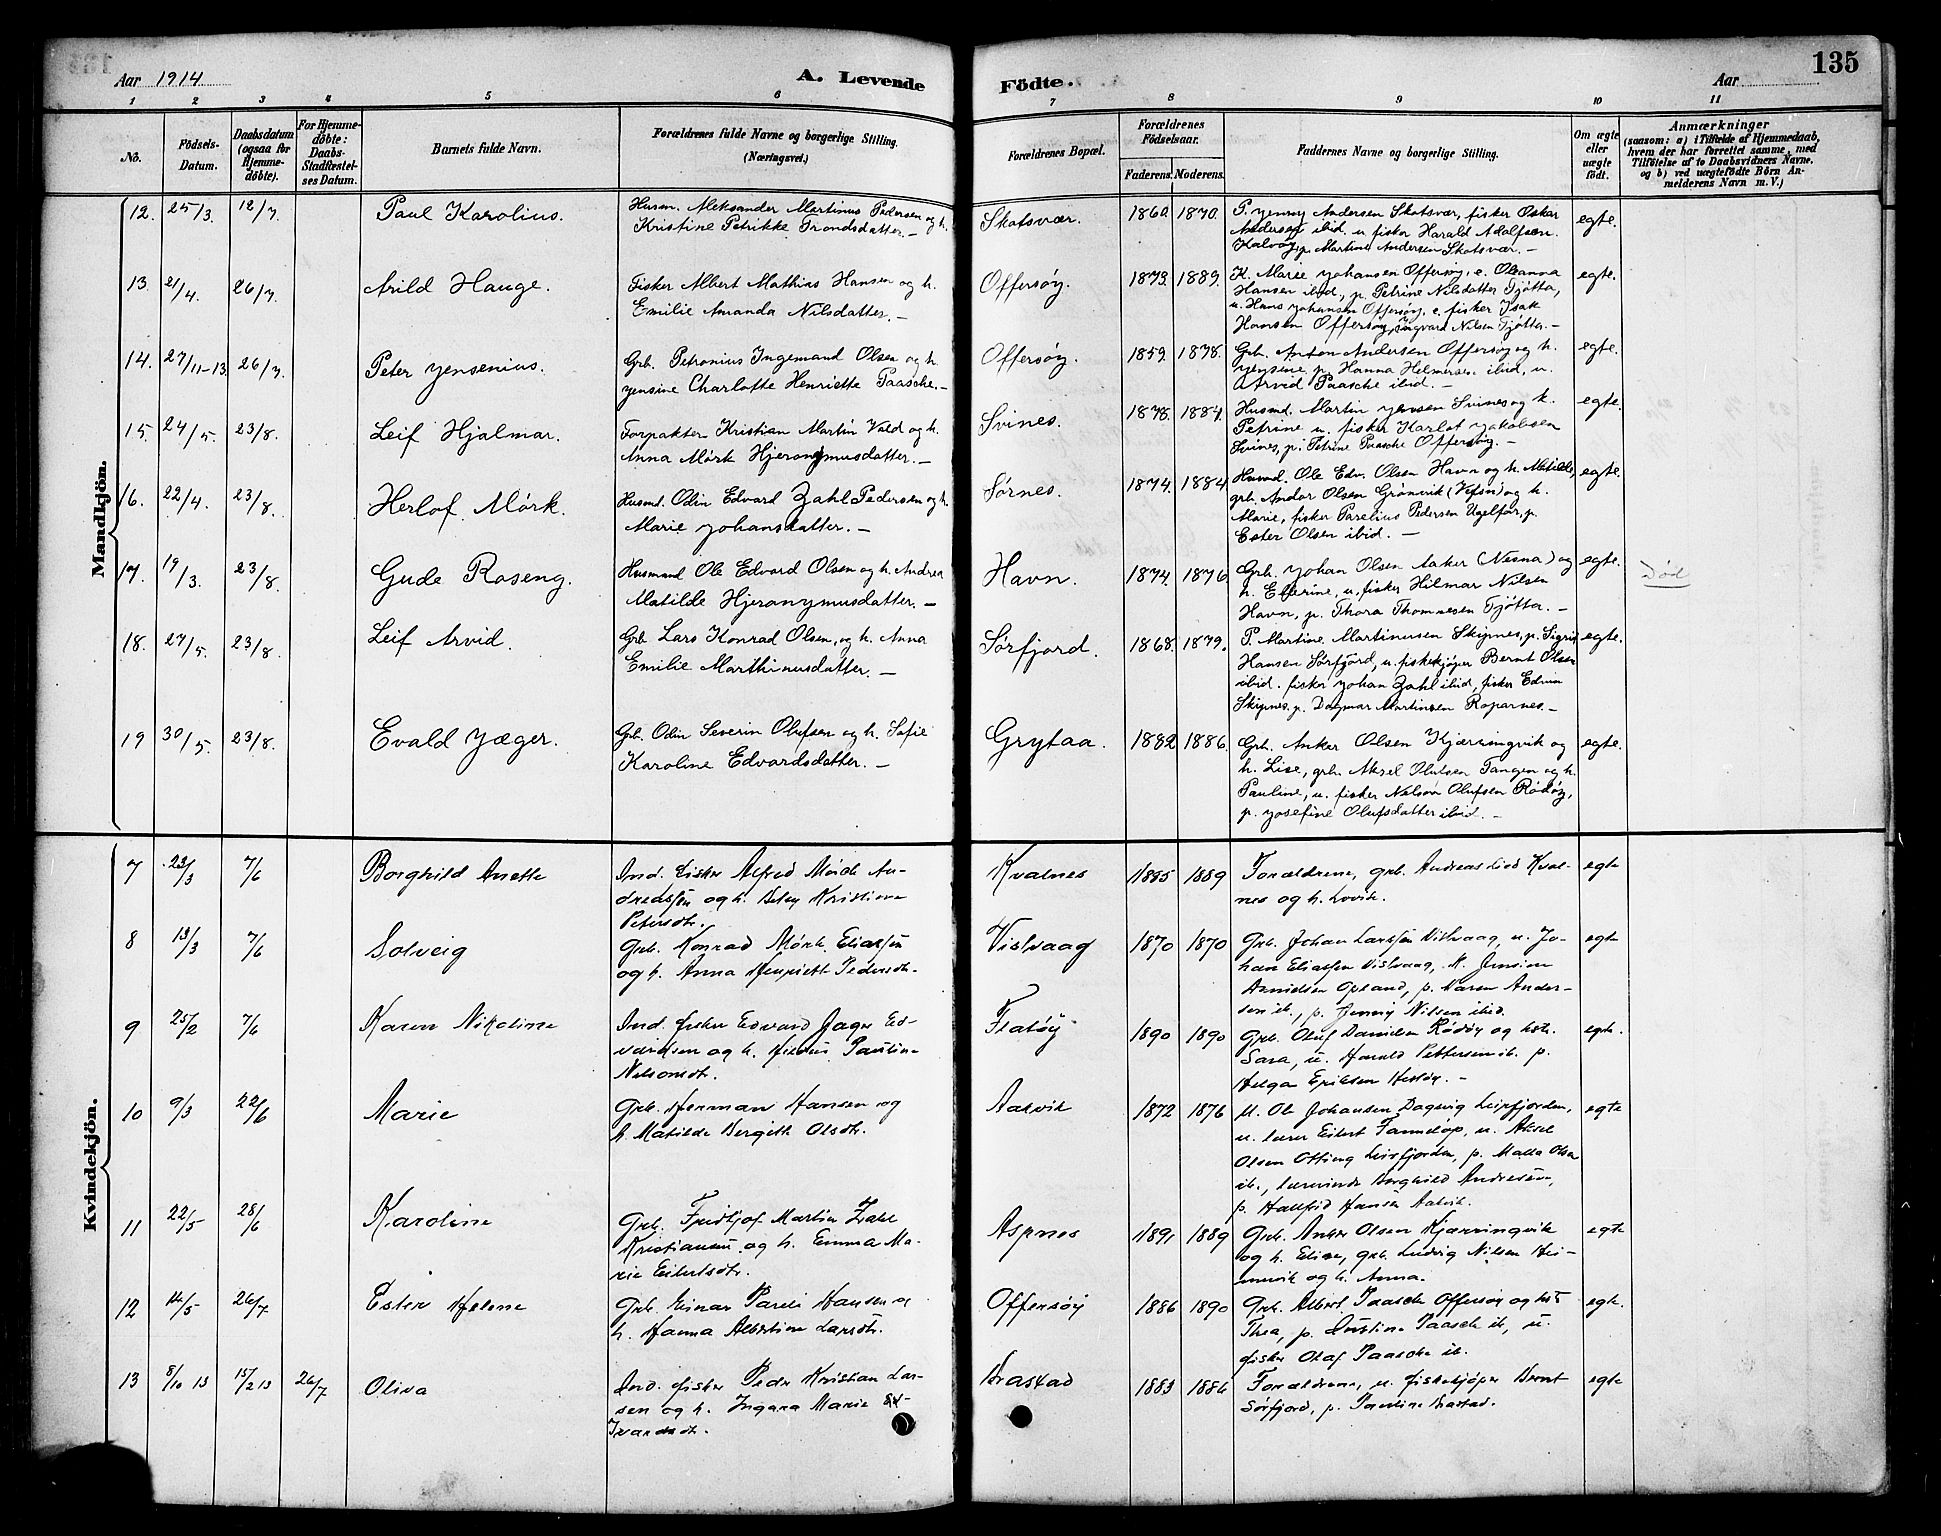 Aar 1914
A. Levende
Födte.
Aar
135
1 2 3 4 5 6 7 8 9 10 11
No.
Födsels-Datum.
Daabsdatum (ogsaa for Hjemme-döbte).
For Hjemme-döbte: Daabs-Stadfæstel-ses Datum.
Barnets fulde Navn.
Forældrenes fulde Navne og borgerlige Stilling. (Næringsvei.)
Forældrenes Bopæl.
Forældrenes Födselsaar.
Faderens. Moderens.
Faddernes Navne og borgerlige Stilling.
Om ægte eller uægte födt.
Anmærkninger
(saasom: a) i Tilfælde af Hjemmedaab, hvem der har forrettet samme, med Tilföielse af to Daabsvidners Navne. og b) ved uægtefödte Börn An-melderens Navn m. V.)
Mandkjön.
12. 25/3. 12/7. Paul Karolius. Husm. Aleksander Martinus Pedersen og h.
Kristine Petrikke Trondsdatter. —
Skotsvær. 1860. 1870. P. Yenny Andersen Skotsvær, fisker Oskar
Andersen ibid, u. fisker Harald Adolfsen
Kalvøy, p. Martine Andersen Skotsvær. — egte.
13. 21/4. 26/7. Arild Hauge. Fisker Albert Mathias Hansen og h.
Emilie Amanda Nilsdatter. —
Offersøy. 1873. 1889. K. Marie Johansen Offersøy, e. Oleanna
Hansen ibid, p. Petrine Nilsdatter Tjøtta,
u. Hans Johansen Offersøy, e. fisker Isak
Hansen Offersøy, Ingvard Nilsen Tjøtta. — egte.
14. 27/11-13. 26/7. Peter Yensenius. Grb. Petronius Ingemand Olsen og h.
Yensine Charlotte Henriette Paasche. —
Offersøy. 1859. 1878. Grb. Anton Andersen Offersøy og h.
Yensine, p. Hanna Helmersen ibid, u.
Arvid Paasche ibid. — egte.
15. 24/5. 23/8. Leif Hjalmar. Forpakter Kristian Martin Vald og h.
Anna Mørk Hjeronymusdatter. —
Svines. 1878. 1884. Husmd. Martin Yensen Svines og h.
Petrine u. fisker Karlot Yakobsen
Svines, p. Petrine Paasche Offersøy. — egte.
16. 22/4. 23/8. Herlof Mørk. Husmd. Odin Edvard Zahl Pedersen og h.
Marie Johansdatter. —
Sørnes. 1874. 1884. Husmd. Ole Edv. Olsen Havn og h. Matilde,
grb. Andor Olsen Grønvik (Vefsn) og h.
Marie, fisker Parelius Pedersen Ugelfar, p.
Ester Olsen ibid. — egte.
17. 19/3. 23/8. Gude Roseng. Husmand Ole Edvard Olsen og h. Andrea
Matilde Hjeronymusdatter. —
Havn. 1874. 1876. Grb. Johan Olsen Aaker (Nesna) og
h. Elferine, u. fisker Hilmar Nilsen
Havn, p. Thora Thommesen Tjøtta. — egte. Død
18. 27/5. 23/8. Leif Arvid. Grb. Lars Konrad Olsen, og h. Anna
Emilie Marthinusdatter. —
Sørfjord. 1868. 1879. P. Martine Martinusen Skipnes, p. Sigrid
Hansen Sørfjord, u. fiskekjøper Bernt Olsen
ibid. fisker Johan Zahl ibid, fisker Edvin
Skipnes, p. Dagmar Martinsen Roparnes. — egte.
19 30/5. 23/8. Evald Yæger. Grb. Odin Severin Olufsen og h. Sofie
Karoline Edvardsdatter. —
Grytaa. 1882 1886. Grb. Anker Olsen Kjærringvik og
h. Lise, grb. Aksel Olufsen Tangen og h.
Pauline, u. fisker Nelson Olufsen Rødøy,
p. Josefine Olufsdatter ibid. — egte.
Kvindekjön.
7 23/3 7/6 Borghild Anette Ind. fisker Alfred Meide An-
dreassen og h. Betsy Kristiane
Petersdtr.
Kvalnes 1885 1889 Forældrene, grb. Andreas Kval-
nes og h. Lovise. egte
8 13/3 7/6 Solveig Grb. Konrad Mørk Eliassen
og h. Anna Henriette Pedersdtr.
Vistvaag 1870 1870 Grb. Johan Larssen Vistvaag, u. Jo-
han Eliassen Vistvaag, K. Jensine
Arnidsen Opland, p. Maren Ander-
sen ib., p. Jenny Nilsen ibid. egte
9 25/2 7/6 Karen Nikoline Ind. fisker Edvard Jæger Ed-
vardsen og h. Pauline
Nelsonsdtr.
Flatøy 1890 1890 Grb. Oluf Danielsen Rødøy og hstr.
Sara, u. Harald Pettersen ib. p.
Helga Eriksen Hestøy. — egte.
10 9/3 22/6 Marie Grb. Herman Hansen og
h. Matilde Bergitte Olsdtr.
Aakvik 1872 1876 u. Ole Johansen Dagsvig Leirfjorden,
u. lærer Eilert Tannelöp, u. Aksel
Olsen Otting Leirfjorden, p. Malla Olsen
ib., lærerinde Borghild Andresen,
p. Hallfrid Hansen Aakvik. egte
11 22/5 28/6 Karoline Grb. Fridtjof Martin Zahl
Kristiansen og h. Emma Ma-
rie Eilertsdtr.
Aspnes 1891 1889 Grb. Anker Olsen Kjærringvik
og h. Elise, grb. Ludvig Nilsen Hei-
nmervik og h. Anna. egte
12 14/5 26/7 Ester Helene Grb. Einar Pareli Hansen og
h. Hanna Albertine Larsdtr.
Offersøy 1886 1890 Grb. Albert Paasche Offersøy og hstr
Thea, p. Justine Paasche ib, u.
fisker Olaf Paasche ib. egte.
13 8/10 13 15/2 13 26/7 Oliva Ind. fisker Peder Kristian Lar-
sen og h. Ingara Marie
Ivarsdtr.
Brastad 1883 1886 Forældrene, u. fiskekjøper Bernt
Sørfjord, p. Pauline Brastad. egte